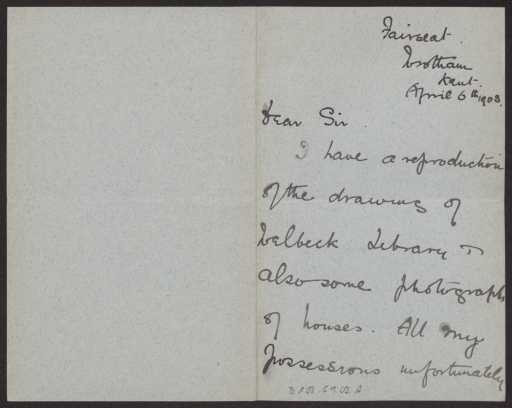 Fairseat.
Wrotham
Kent.
April 6th 1908.
Dear Sir
I have a reproduction
of the drawing of
Welbeck Library &
also some photographs
of houses. All my
possessions unfortunately